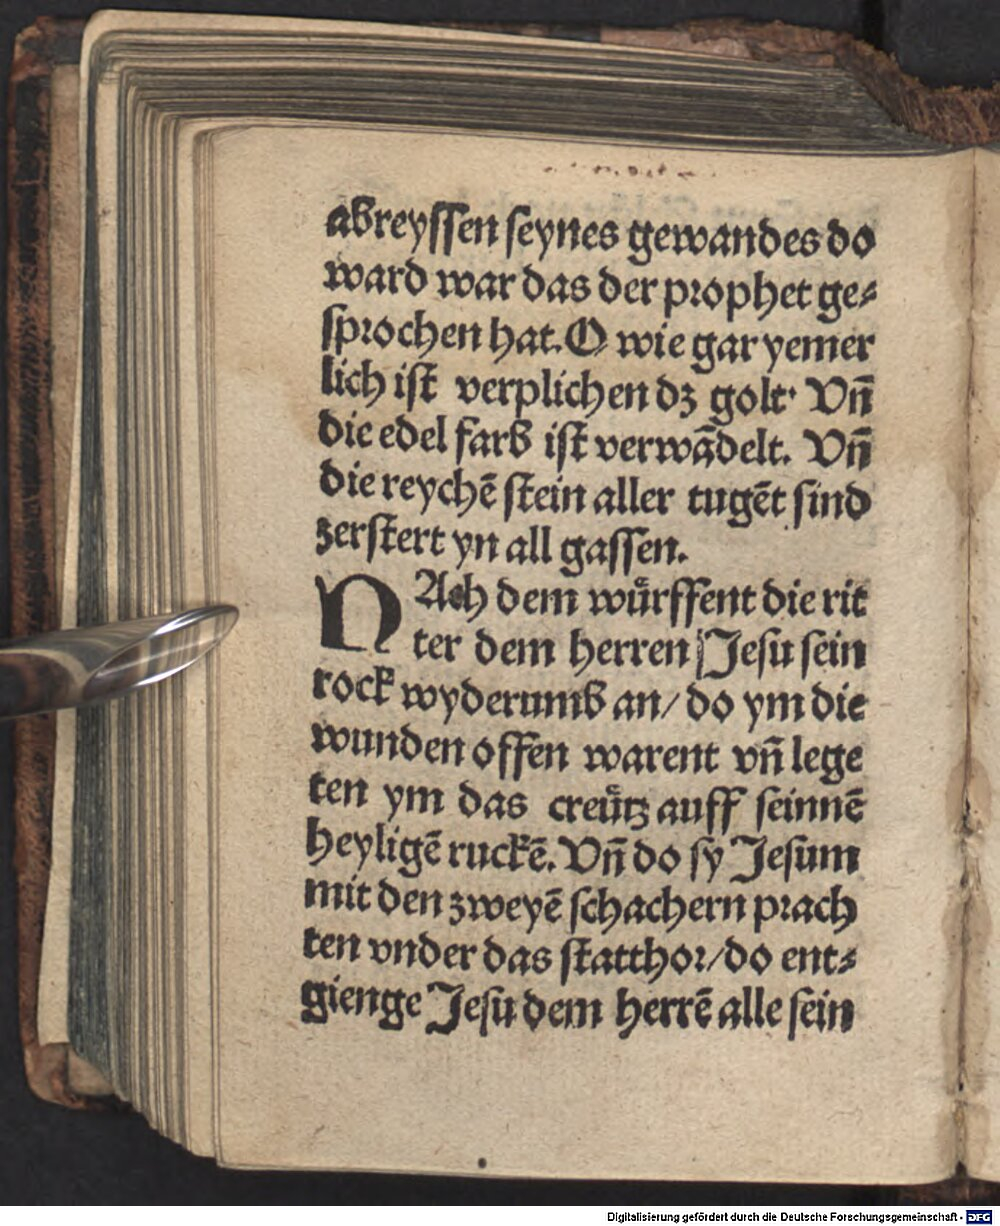 abreyſſen ſeynes gewandes do
ward war das der prophet ge⸗
ſprochen hat. O wie gar yemer
lich iſt verplichen dz golt· Vñ
die edel farb iſt verwādelt. Vñ
die reychē ſtein aller tugēt ſind
zerſtert yn all gaſſen.
NAch dem wuͤrffent die rit
ter dem herren Jeſu ſein
rock wyderumb an/ do ym die
wunden offen warent vñ lege
ten ym das creuͤtz auff ſeinnē
heyligē ruckē. Vñ do ſy Jeſum
mit den zweyē ſchachern prach
ten vnder das ſtatthor/do ent⸗
gienge Jeſu dem herrē alle ſein
Digitalisierung gefördert durch die Deutsche Forschungsgemeinschaft - DFG